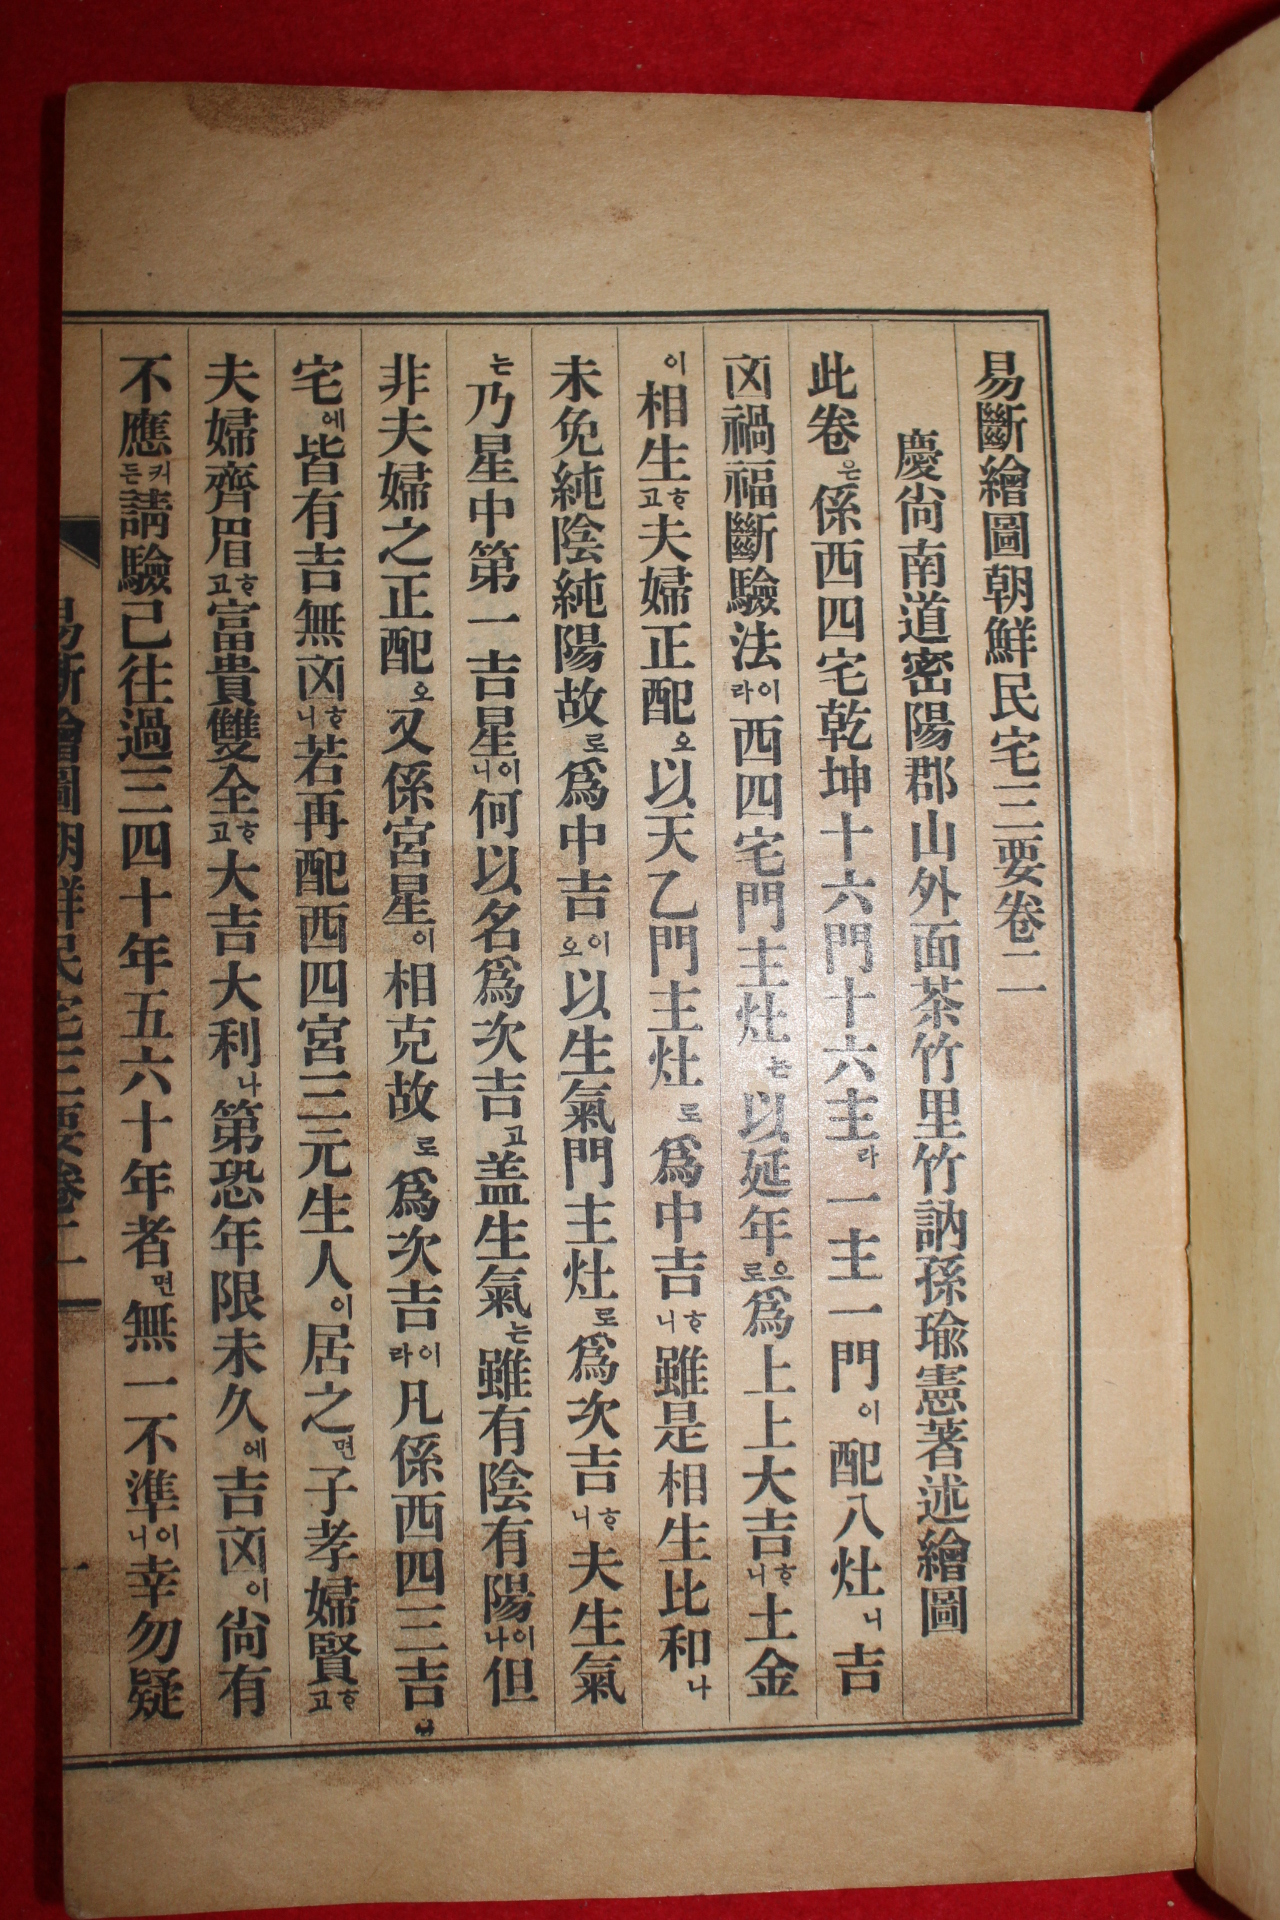 易斷繪圖朝鮮民宅三要卷二
慶尙南道密陽郡山外面茶竹里竹訥孫瑜憲著述繪圖
此卷은係西四宅乾坤十六門十六主라一主一門이配八灶니吉
凶禍福斷驗法이라西四宅門主灶는以延年으로爲上上大吉ᄒᆞ니土金
이相生ᄒᆞ고夫婦正配오以天乙門主灶로爲中吉ᄒᆞ니雖是相生比和나
未免純陰純陽故로爲中吉이오以生氣門主灶로爲次吉ᄒᆞ니夫生氣
는乃星中第一吉星이니何以名爲次吉고盖生氣는雖有陰有陽이나但
非夫婦之正配오又係宮星이相克故로爲次吉이라凡係西四三吉
宅에皆有吉無凶ᄒᆞ니若再配西四宮三元生人이居之면子孝婦賢ᄒᆞ고
夫婦齊眉ᄒᆞ고富貴雙全ᄒᆞ고大吉大利나第恐年限未久에吉凶이尙有
不應커든請驗己往過三四十年五六十年者면無一不準이니幸勿疑
易斷繪圖朝鮮民宅三要卷二 一